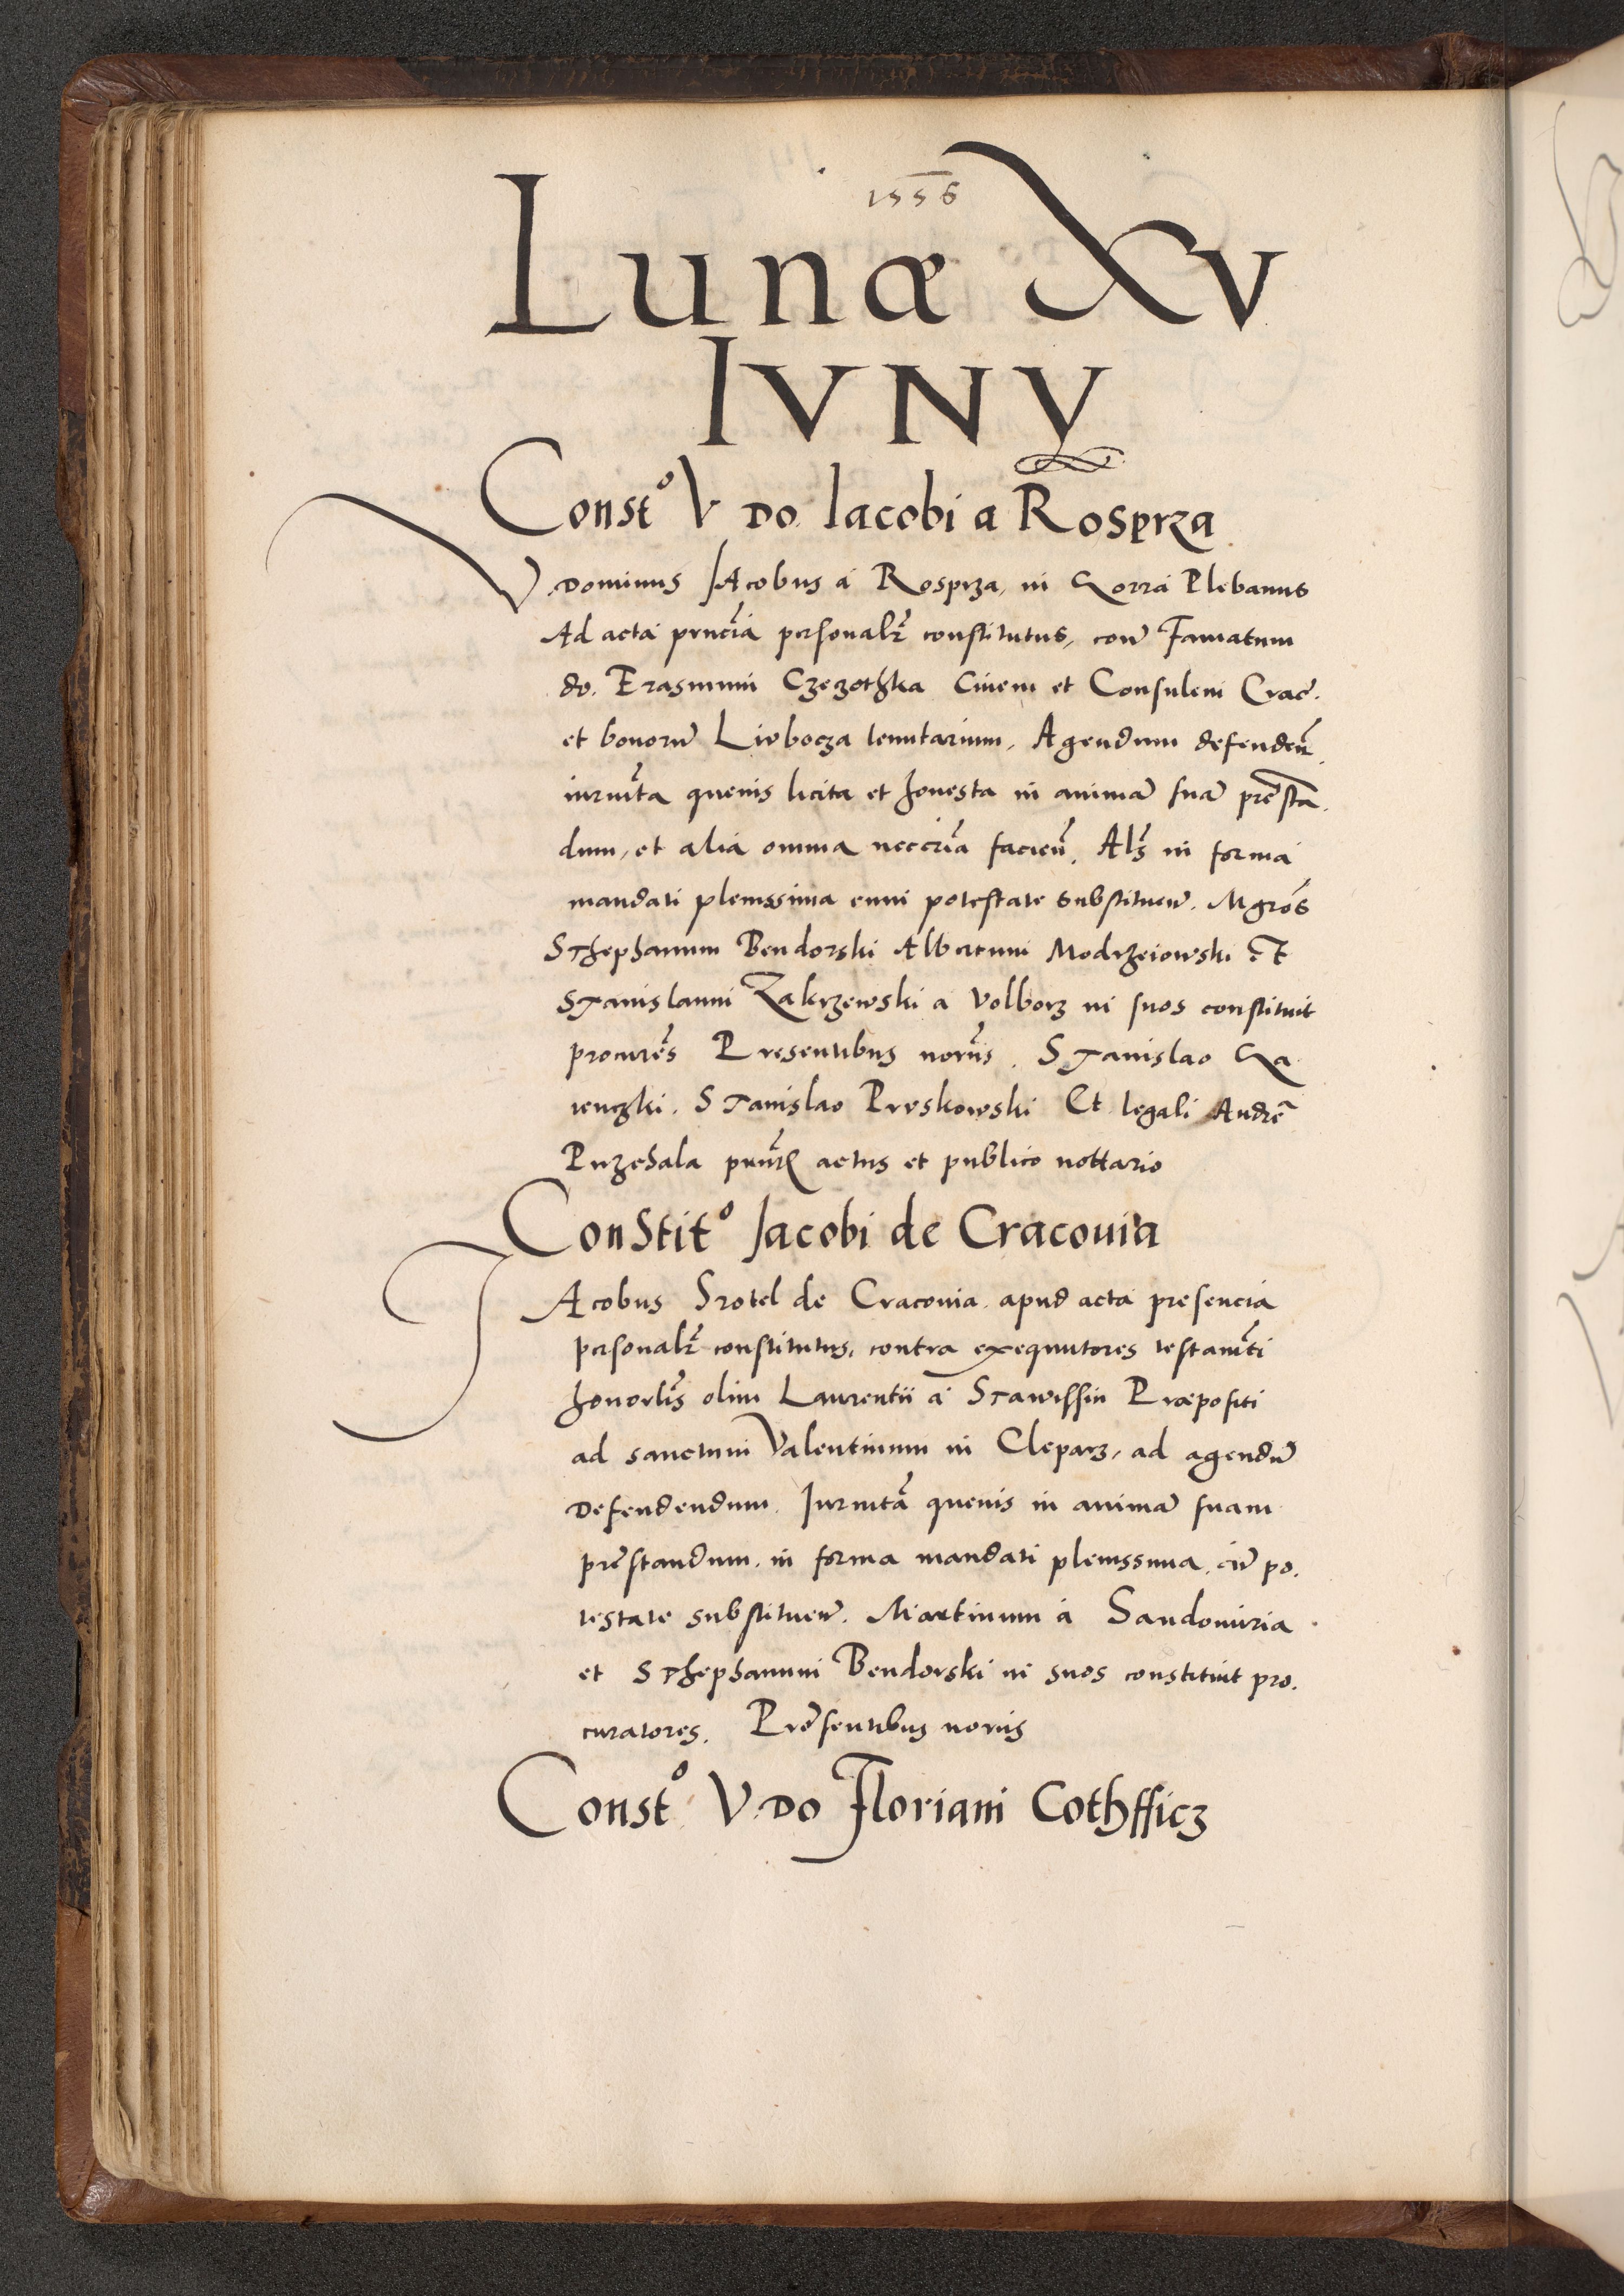 1556
Lunæ XV
IVNY
Constº V Do Iacobi a Rosprza
V. Dominus Jacobus a Rosprza, in Gorra Plebanus
Ad acta pńcia personalr̃ constitutus, con̄ Famatum
do. Erasmum Czeczothka Civem et Consulem Crac̄.
et bonorū Liwbocza tenutarium, Agendum defendeñ
iuramẽta quevis licita et honesta in animā suā prēsta.
dum, et alia omnia neccria facieñ. Alʒ in forma
mandati plenissima cum potestate substituen̄. Mgros
SThephanum Bendorski Albertum Modrzeiowski Et
Stanislaum Zakrzewski a Volborz in suos constituit
procurēs Presentibus noriis. Stanislao Ga
ienczki. Stanislao Proskowski Et legali Andrē
Puzehala pñtis actus et publico nottario
ConStitº Jacobi de Cracouia
JAcobus Srotel de Craconia. apud acta presencia
personalr̃ constitutus, contra exequutores testamẽti
honorlis olim Laurentii a Stawissin Præpositi
ad sanctum Valentinum in Cleparz, ad agendū
Defendendum. Juramtā quevis in animā suam
prēstandum. in forma mandati plenissima. cū po.
testate substituen̄. Martinum a Sandomiria.
et SThephanum Bendorski in suos constituit pro.
curatores. Prēsentibus noriis
Constº. V. Do Floriani Cothfficz